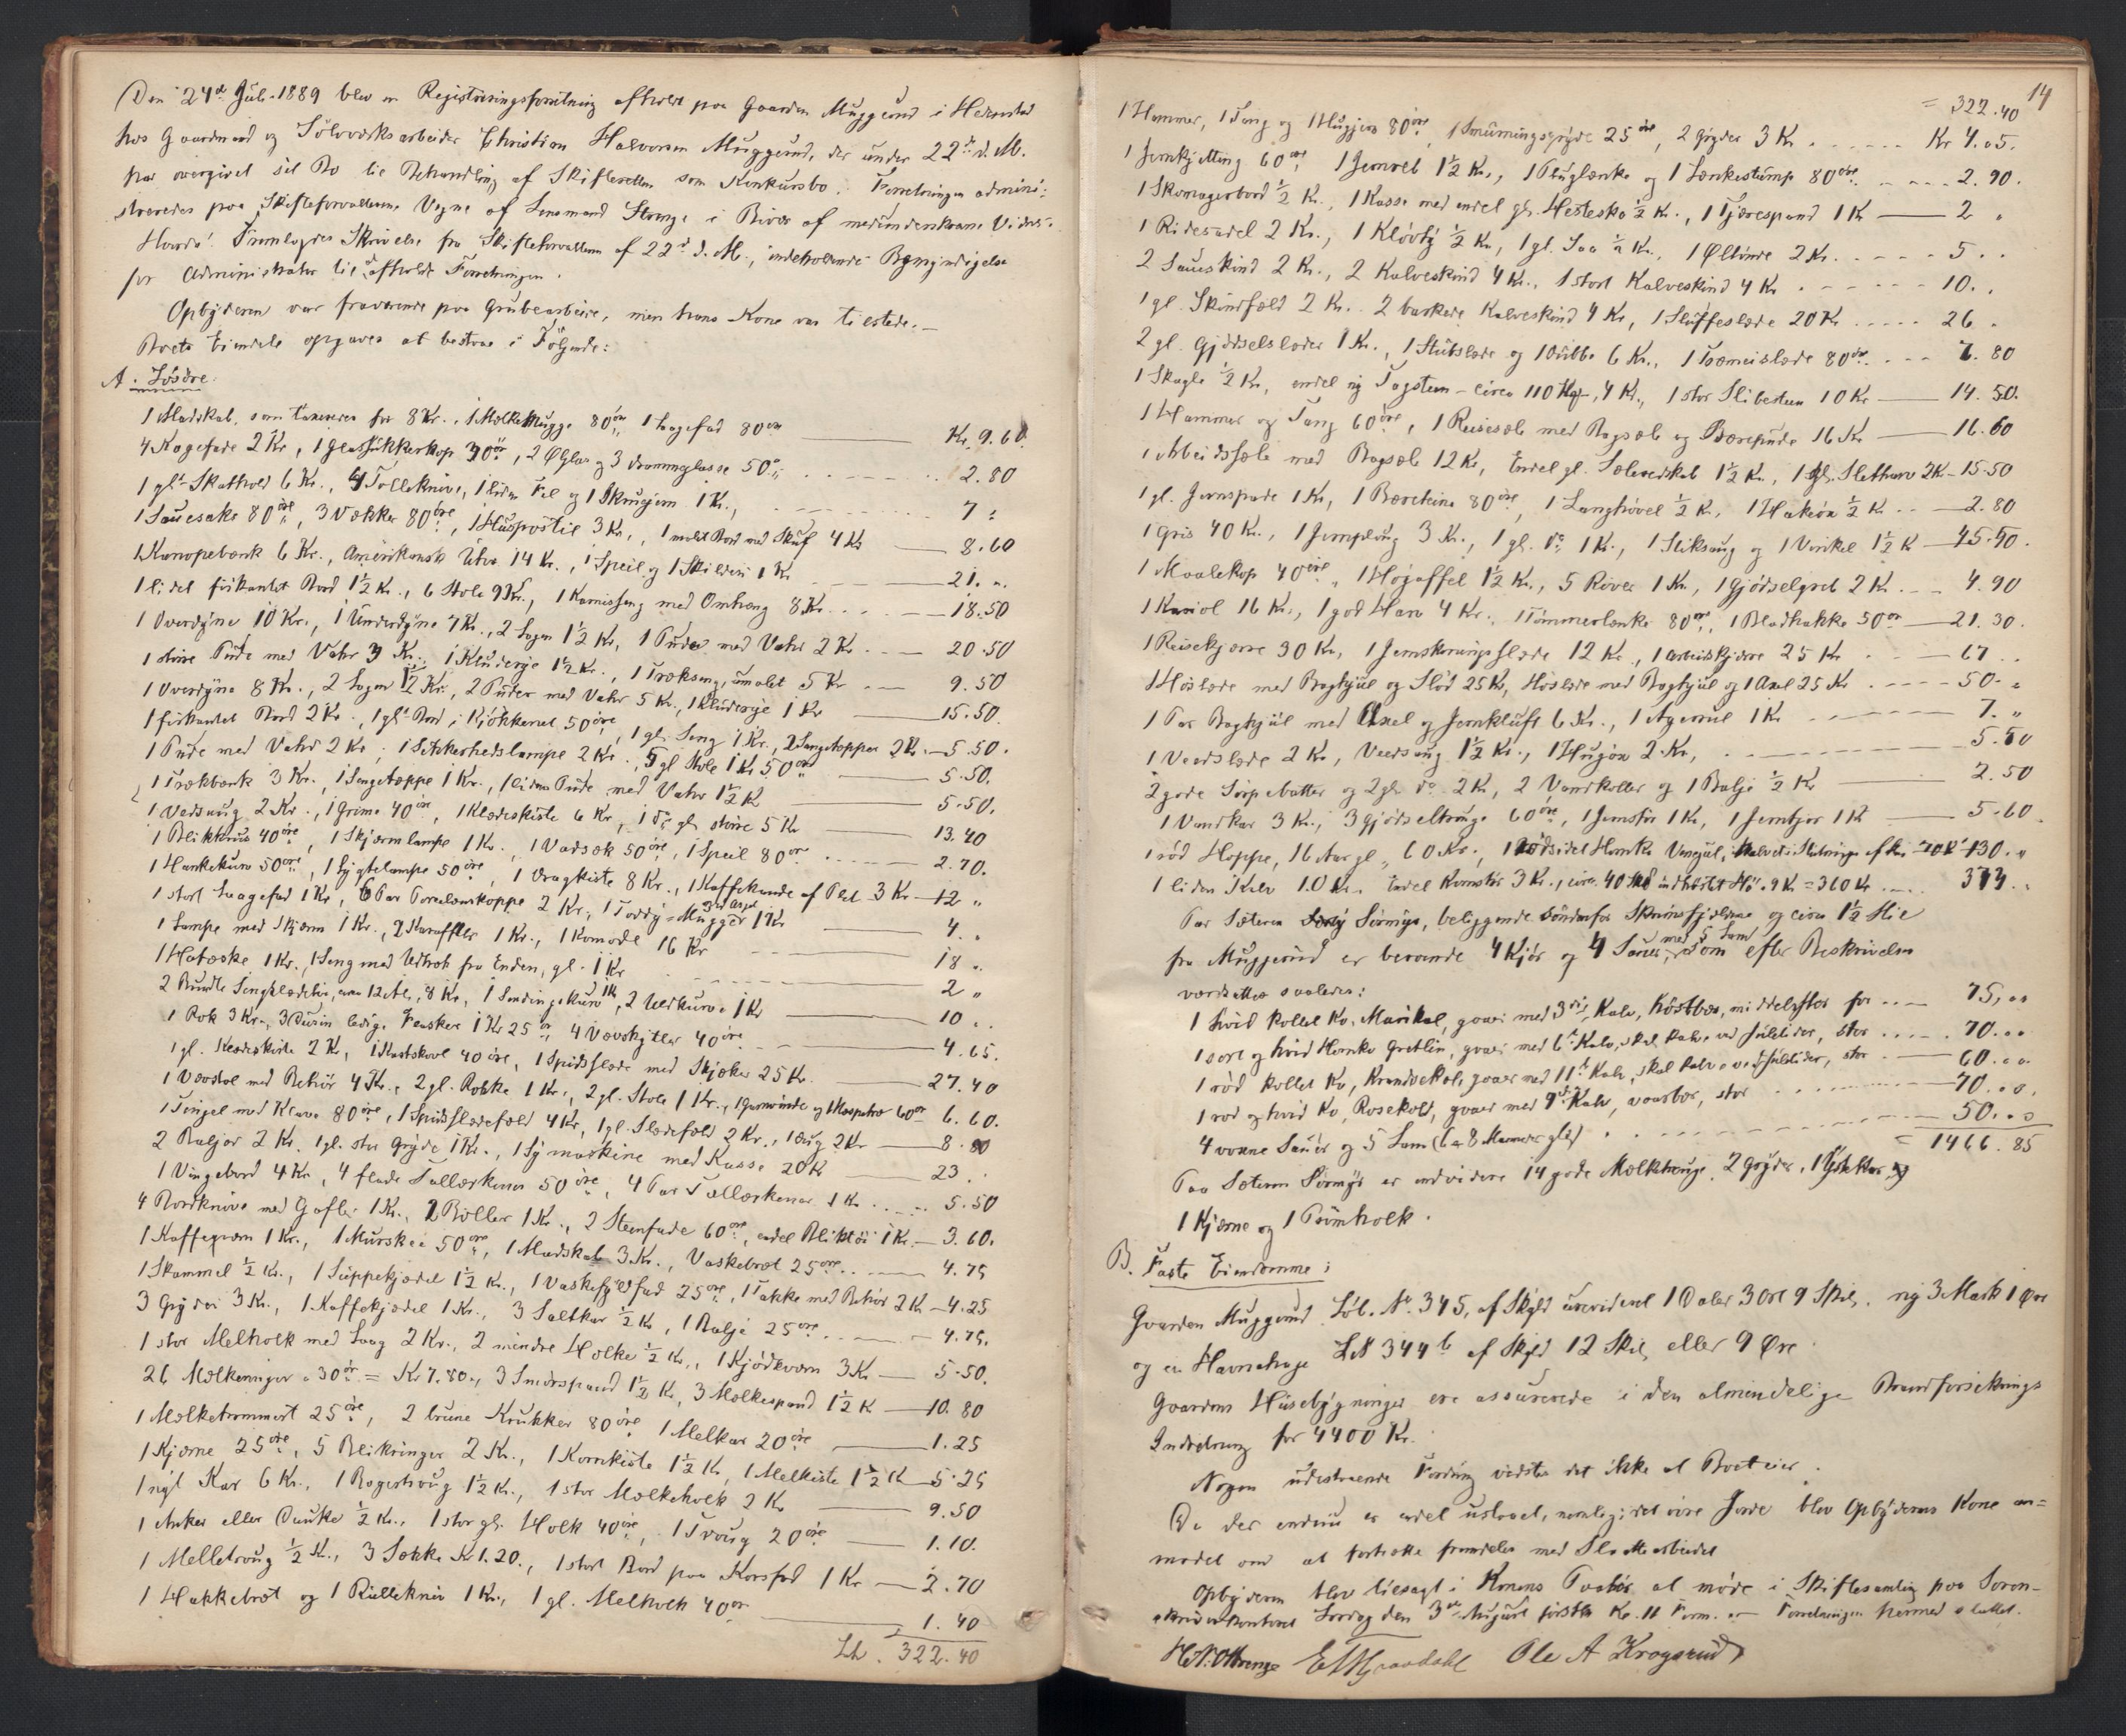 Den 24de Juli 1889 blev en Registreringsforretning afholdt paa Gaarden Muggerud i Hedenstad
hos Gaardmand og Sölvverksarbeider Christian Halvorsen Muggerud, der under 22de d. M.
har overgivet sit Bo til Behandling af Skifteretten som Konkursbo. Forretningen admini-
streredes paa Skifteforvalterens Vegne af Lensmand Strenge i af medundertegnede Vidner.
Fremlagdes Skrivelse fra Skifteforvalteren af 22de d. M., indeholdende Bemyndigelse
for Administrator til at afholde Forretningen.
Opbyderen var fraværende paa Grubearbeide, men hans Kone var tilstede. —
Boets Eiendele opgaves at bestaa i Følgende:
A. Løsøre:
1 Madskab, som taxeres for 8 Kr., 1 Melkemugge 80 öre, 1 Laagefad 80 öre — Kr. 9.60.
4 Kagefade 2 Kr, 1 Glassukkerkop 30 öre, 2 Ølglas og 3 Dramglasse 50 öre — 2.80
1 gl. Skathold 6 Kr., 4 Tolleknive, 1 liden Fil og 1 Skruejern 1 Kr., — 7 "
1 Sauesaks 80 öre, 3 Vækker 80 öre, 1 Huspostil 3 Kr., 1 malt Bord med Skuf 4 Kr — 8.60
1 Kanapebænk 6 Kr., Amerikansk Uhr 14 Kr., 1 Speil og 1 Skilderi 1 Kr — 21. "
1 lidet firkantet Bord 1½ Kr., 6 Stole 9 Kr., 1 Karnisseng med Omhæng 8 Kr. — 18.50
1 Overdyne 10 Kr., 1 Underdyne 7 Kr., 2 Lagen 1½ Kr, 1 Pude med Vahr 2 Kr. — 20.50
1 större Pude med Vahr 3 Kr., 1 Kluderye 1½ Kr., 1 Træksæng, umalet 5 Kr — 9.50
1 Overdyne 8 Kr., 2 Lagen 1½ Kr., 2 Puder med Vahr 5 Kr., 1 Kluderye 1 Kr — 15.50.
1 firkantet Bord 2 Kr., 1 gl. Bord i Kjökkenet 50 öre, 1 gl. Seng 1 Kr., 2 Sengetæpper 2 Kr. — 5.50.
1 Pude med Vahr 2 Kr., 1 Sikkerhedslampe 2 Kr., 5 gl Stole 1 Kr 50 öre — 5.50.
1 Trækbænk 3 Kr., 1 Sengetæppe 1 Kr., 1 liden Pude med Vahr 1½ Kr — 5.50.
1 Vedsaug 2 Kr., 1 Grime 40 öre, 1 Klædeskiste 6 Kr, 1 do gl. större 5 Kr — 13.40
1 Blikkrus 40 öre, 1 Skjærmlampe 1 Kr., 1 Vadsæk 50 öre, 1 Speil 80 öre — 2.70.
1 Hankekurv 50 öre, 1 Lygtelampe 50 öre, 1 Dragkiste 8 Kr., 1 Kaffekande af Plet 3 Kr — 12 "
1 stort Laagefad 1 Kr, 6 Par Porcelænskopper 2 Kr., 1 Toddy-Mugger 1 Kr — 4. "
1 Lampe med Skjærm 1 Kr., 2 Karafler 1 Kr., 1 Komode 16 Kr — 18 "
1 Hateske 1 Kr., 1 Seng med Udtræk fra Enden, gl. 1 Kr — 2 "
2 Bundte Sengklædetöi, 12 Al., 8 Kr., 1 Sendingskurv 1 Kr, 2 Uldkurve 1 Kr — 10 "
1 Rok 3 Kr., 3 Dusin ledige Flasker 1 Kr 25 öre, 4 Vævskytler 40 öre — 4.65.
1 gl. Klædeskiste 2 Kr, 1 Kastskovl 40 öre, 1 Spidsslæde med Skjæker 25 Kr. — 27.40
1 Vævstol med Behör 4 Kr., 2 gl. Rokke 1 Kr., 2 gl. Stole 1 Kr., 1 Garnvinde og 1 Haspetræ 60 öre — 6.60.
1 Pingel med Klave 80 öre, 1 Spidsslædefæld 4 Kr, 1 gl. Slædefæld 2 Kr., 1 2 Kr — 8.80
2 Baljer 2 Kr. 1 gl. stor Gryde 1 Kr., 1 Symaskine med Kasse 20 Kr — 23. "
1 Vingebord 4 Kr, 4 flade Tallærkener 50 öre, 4 Par Tallærkener 1 Kr. — 5.50
4 Bordknive med Gafler 1 Kr., 2 Boller 1 Kr., 2 Stenfade 60 öre, endel Bliktöi 1 Kr. — 3.60.
1 Kaffeqværn 1 Kr., 1 Murskee 50 öre, 1 Madskab 3 Kr., Vaskebræt 25 öre — 4.75
1 Skammel ½ Kr., 1 Suppekjædel 1½ Kr., 1 25 öre, 1 Takke med Behör 2 Kr — 4.25
3 Gryder 3 Kr., 1 Kaffekjædel 1 Kr., 3 Saltkar ½ Kr, 1 Balje 25 öre — 4.75.
1 stor Melholk med Laag 2 Kr., 2 mindre Holke ½ Kr., 1 Kjödkværn 3 Kr — 5.50.
26 Mælkeringer a 30 ör = Kr 7.80., 3 Smörspand 1½ Kr, 3 Mælkespand 1½ K — 10.80
1 Mælketrommert 25 öre, 2 brune Krukker 80 öre 1 Melkar 20 öre — 1.25
1 Kjærne 25 öre, 5 Blikringer 2 Kr., 1 Kornkiste 1½ Kr, 1 Melkiste 1½ K — 5.25
1 nyt Kar 6 Kr., 1 Bagertraug 1½ Kr., 1 stor Mælkeholk 2 Kr — 9.50
1 Anker eller Dunke ½ Kr., 1 stor gl. Holk 40 öre, 1 Traug 20 öre — 1.10.
1 Melletraug ½ Kr., 3 Sække Kr 1.20., 1 stort Bord paa Korsfod 1 Kr — 2.70
1 Hakkebræt og 1 Rullekniv 1 Kr., 1 gl. Melholk 40 öre — 1.40
322.40
14
= 322.40
1 Hammer, 1 Tang og 1 Hugjern 80 öre, 1 25 öre, 2 Gryder 3 Kr. — Kr 4.05.
1 Jernkjetting 60 öre 1 Jernvei 1½ Kr., 1 Pluglænke og 1 Lænkestump 80 öre — 2.90.
1 Skomagerbord ½ Kr., 1 Kasse med endel gl. Hestesko ½ Kr., 1 Tjærespand 1 Kr — 2 "
1 Ridesadel 2 Kr., 1 Klövtöi ½ Kr, 1 gl. Saa ½ Kr., 1 Öltönde 2 Kr. — 5 "
2 Saueskind 2 Kr., 2 Kalveskind 4 Kr., 1 stort Kalveskind 4 Kr — 10. "
1 gl. Skindfæld 2 Kr. 2 barkede Kalveskind 4 Kr, 1 Sluffeslæde 20 Kr — 26 "
2 gl. Gjödselslæder 1 Kr., 1 Stutslæde og 1 6 Kr., 1 80 öre — 7.80
1 Skagle ½ Kr, endel ny Tagsteen — circa 110 — 4 Kr., 1 stor Slibesteen 10 Kr — 14.50.
1 Hammer og Tang 60 öre, 1 Reisesæle med Bagsæle og Bærepude 16 Kr — 16.60
1 Arbeidssæle med Bagsæle 12 Kr, Endel gl. Sæleredskab 1½ Kr., 1 gl. Sletharv 2 K — 15.50
1 gl. Jernspade 1 Kr, 1 80 öre, 1 Langhövel ½ K, 1 Hakeöx ½ Kr — 2.80
1 Gris 40 Kr., 1 Jernploug 3 Kr., 1 gl. do 1 Kr., 1 Stiksaug og 1 Vinkel 1½ K — 45.50.
1 Maalekop 40 öre, 1 Högaffel 1½ Kr., 5 River 1 Kr, 1 Gjödselgreb 2 Kr. — 4.90
1 Kariol 16 Kr., 1 god Harv 4 Kr., 1 Tömmerlænke 80 öre, 1 Bladhakke 50 öre — 21.30.
1 Reisekjærre 30 Kr, 1 Jernskoningsslæde 12 Kr., 1 Arbeidskjærre 25 Kr — 67 "
1 Höslæde med Baghjul og Slöd 25 Kr, Höslæde med Baghjul og 1 Axel 25 Kr — 50. "
1 Par Baghjul med Axel og Jernkluft 6 Kr., 1 1 Kr — 7. "
1 Vedslæde 2 Kr, Vedsaug 1½ Kr., 1 Hugöx 2 Kr, — 5.50
2 gode Sörpebøtter og 2 gl. do 2 Kr, 2 Vandholker og 1 Balje ½ Kr — 2.50
1 Vandkar 3 Kr., 3 Gjödseltrauge 60 öre, 1 Jernstör 1 Kr, 1 1 Kr — 5.60.
1 röd Hoppe, 16 Aar gl., 60 Kr., — 130. "
1 liden Kalv 10 Kr. Endel Kornstör 3 Kr., circa 40 indhöstet Hö a 9 Kr = 360 Kr — 373. "
Paa Sæteren Sörmyr, beliggende söndenfor Skrimsfjeldene og circa 1½ Mil
fra Muggerud er beroende 4 Kjör og 4 Sauer med 5 Lam, som efter Beskrivelse
værdsættes saaledes:
1 hvid kollet Ko, Marikol, gaaer med 3die Kalv, höstbær, middelstor for — 75. "
1 sort og hvid Hornko Gretlin, gaaer med 6te Kalv, skal kalve ved Juletider, stor — 70. "
1 röd kollet Ko, Krandsekol, gaaer med 11te Kalv, skal kalve ved Juletider, stor — 60. "
1 röd og hvid Ko, Rosekold, gaaer med 9de Kalv, vaarbær, stor — 70. "
4 voxne Sauer og 5 Lam (6 a 8 Maaneder gle) — 50. "
= 1466.85
Paa Sæteren Sörmyr er endvidere 14 gode Mælketrauge, 2 Gryder, 1 Ystekar og
1 Kjærne og 1 Primholk.
B. Faste Eiendomme:
Gaarden Muggerud Löb. No. 345, af Skyld urevideret 1 Daler 3 Ort 9 Skil., ny 3 Mark 1 Öre
og en Havnehage LN 344 b af Skyld 12 Skil, eller 9 Øre.
Gaardens Husebygninger ere assurerede i den almindelige Brandforsikrings
Indretning for 4400 Kr.
Nogen udestaaende Fordring vidstes det ikke at Boet eier.
Da der endnu er endel uslaaet, nemlig: det övre Jorde blev Opbyderens Kone an-
modet om at fortsætte fremdeles med Slaattearbeidet
Opbyderen blev tilsagt i Konens Paahör at möde i Skiftesamling paa Soren-
skriverkontoret Lördag den 3die August förstk. Kl. 11 Form. — Forretningen hermed sluttet.
H. N. Strenge Ole A Krogsrud